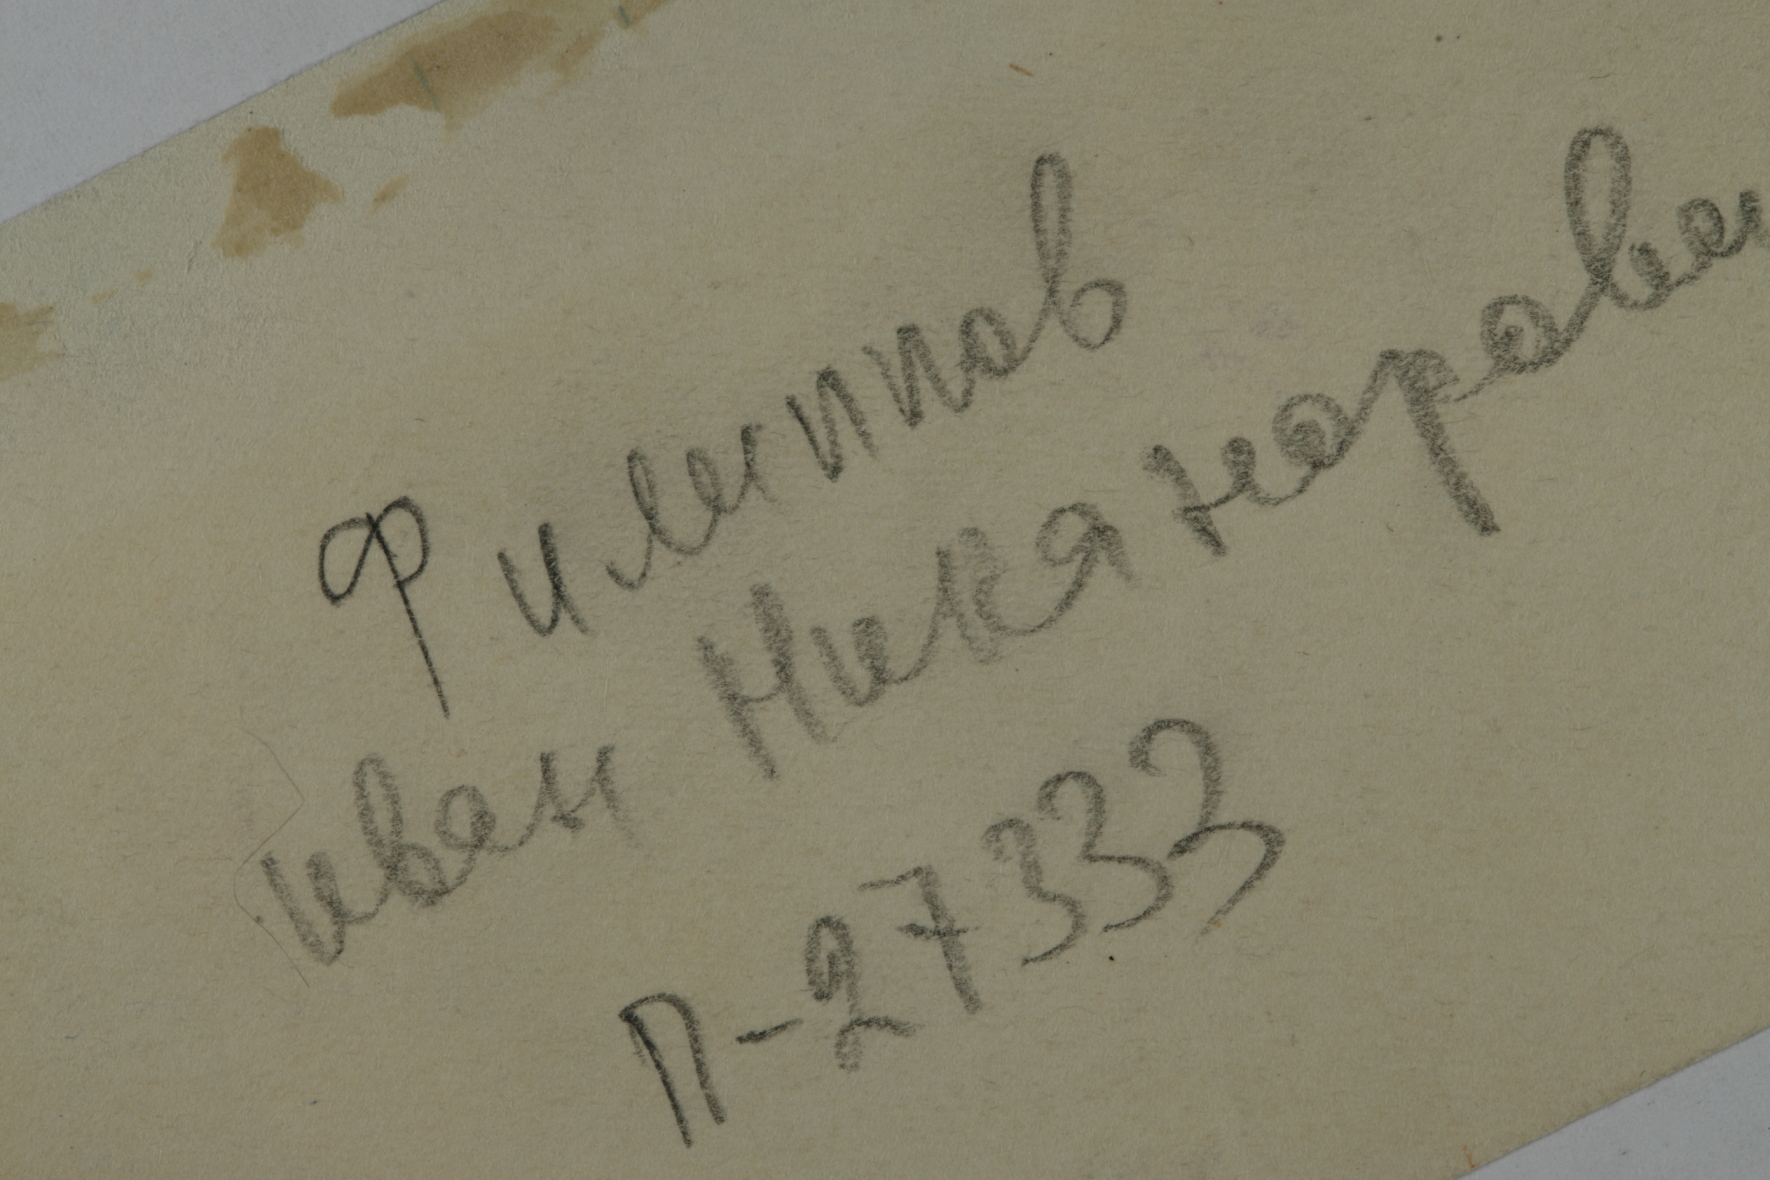 Филиппов
иван Никанорови
П-27333